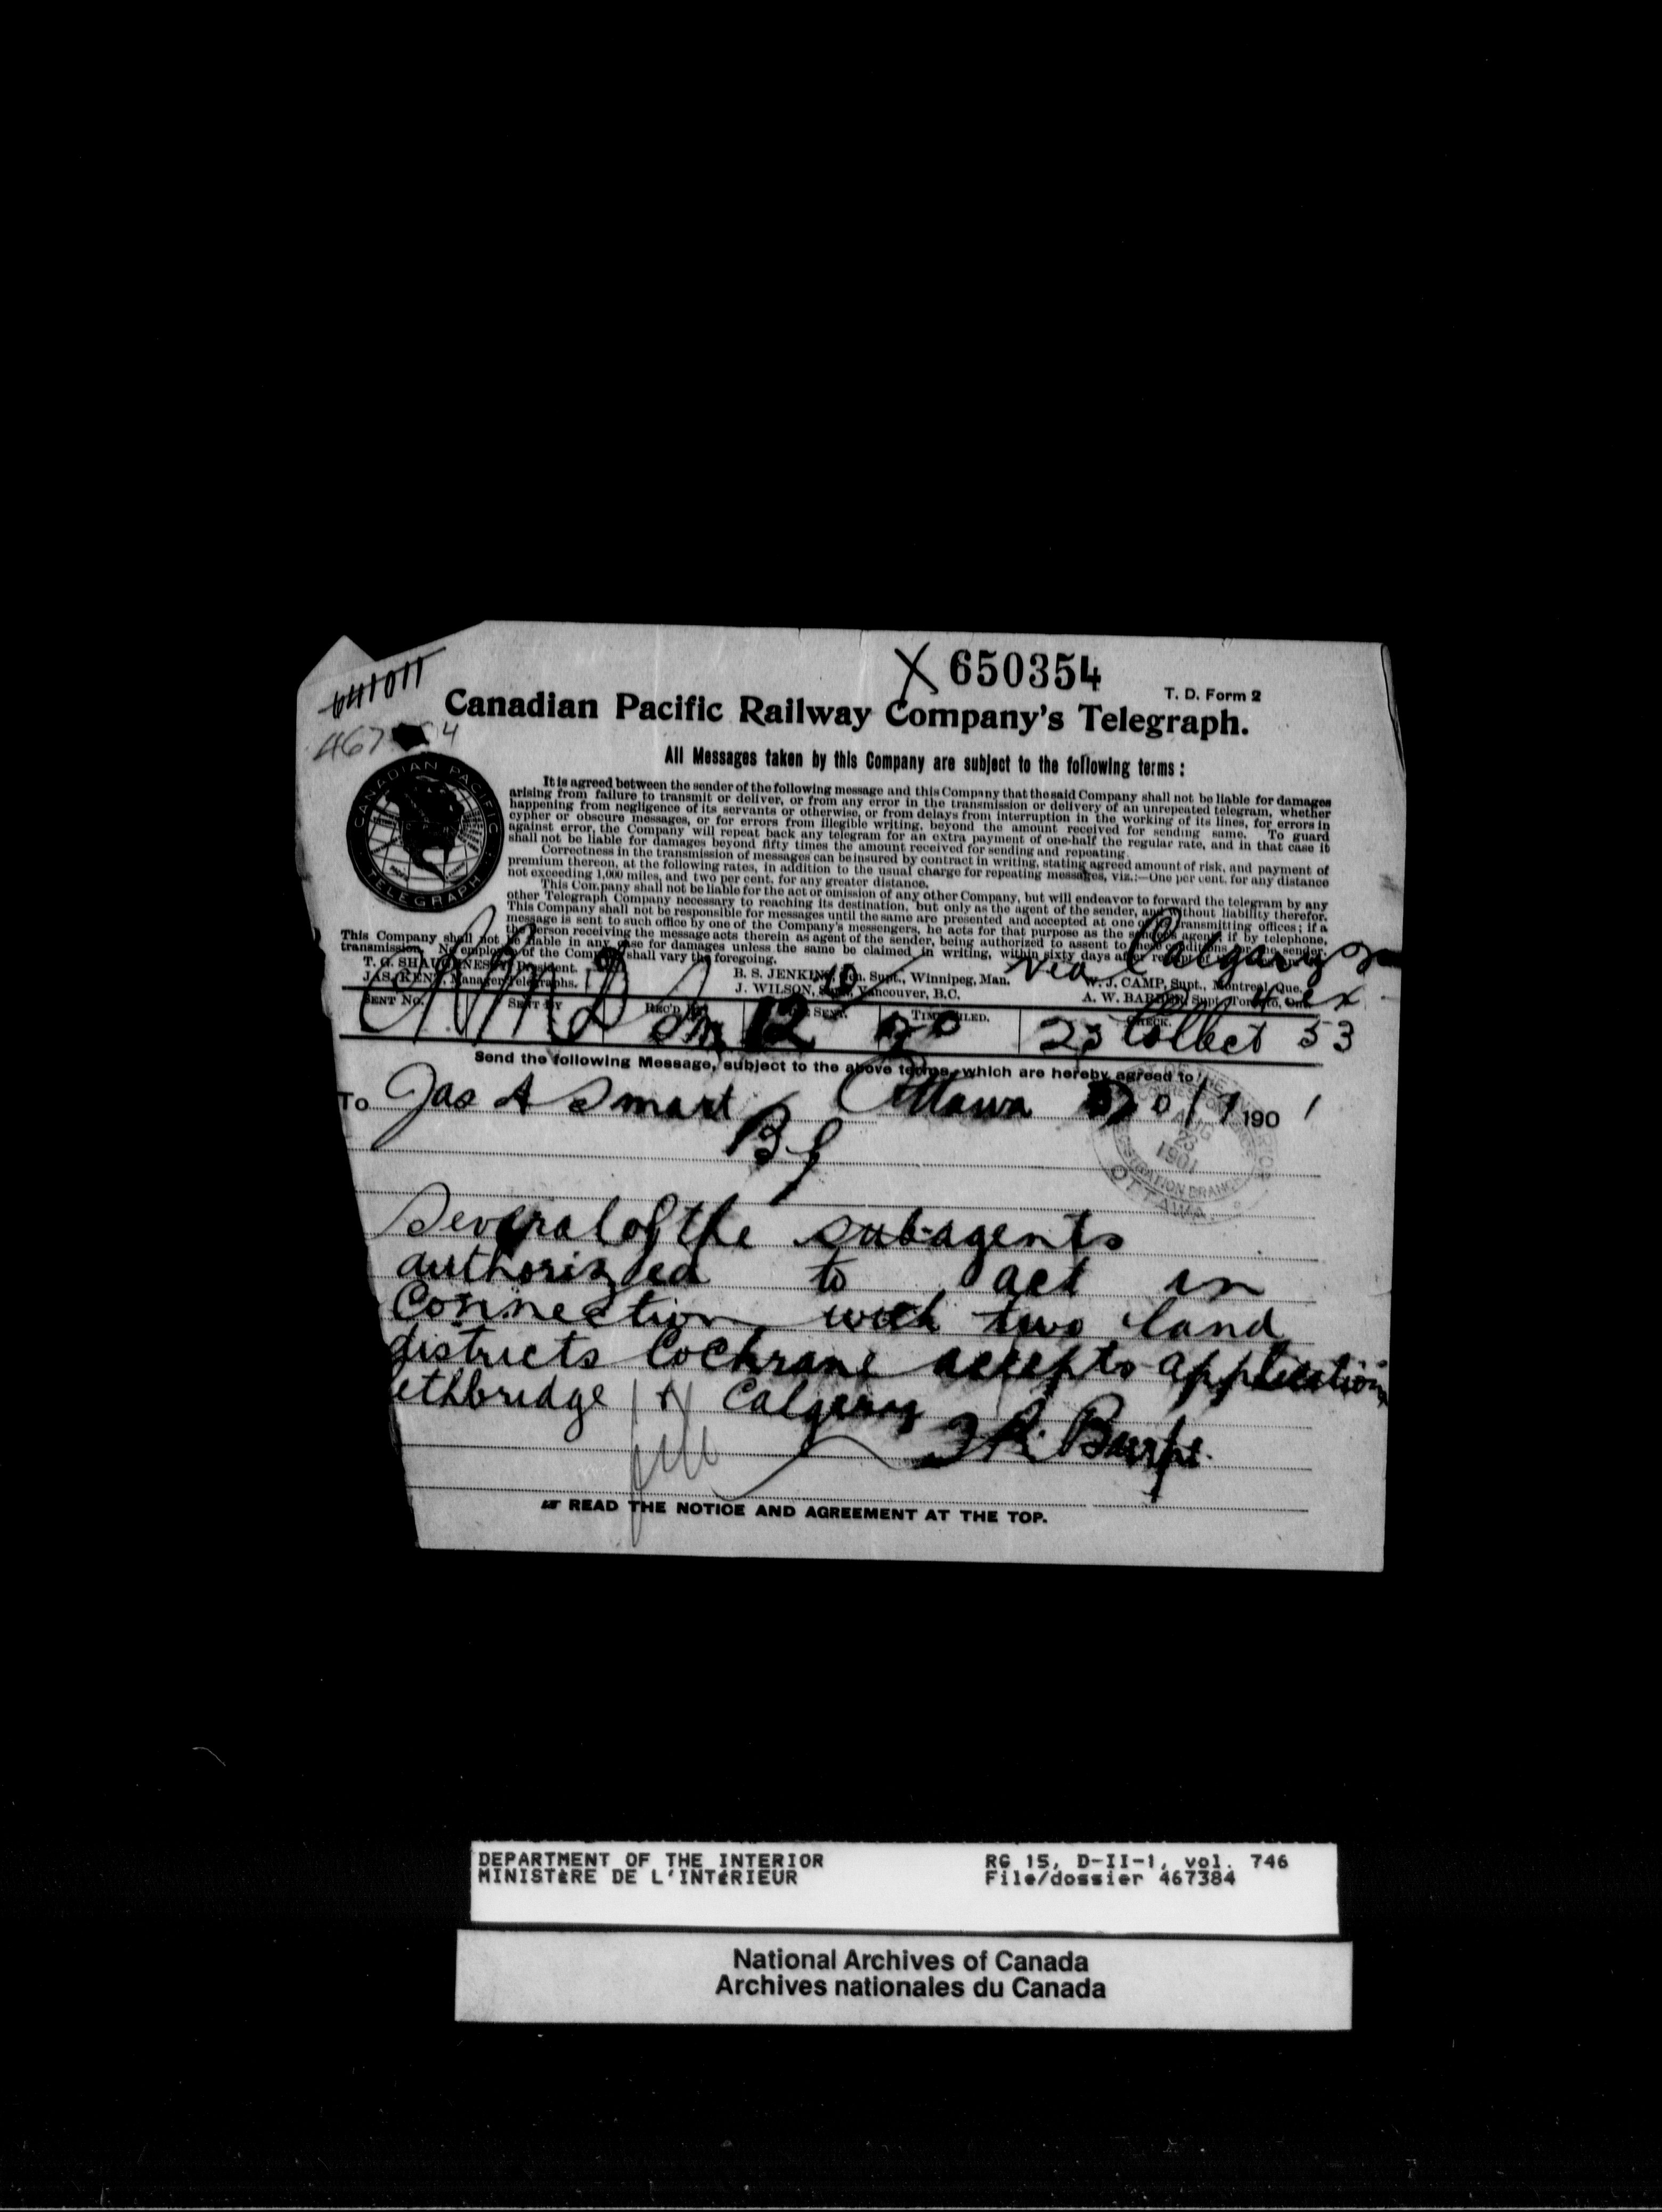 641011
X 650354
T. D. Form 2
Canadian Pacific Railway Company's Telegraph.
All Messages taken by this Company are subject to the following terms :
CANADIAN PACIFIC
TELEGRAPH
It is agreed between the sender of the following message and this Company that the said Company shall not be liable for damages
arising from failure to transmit or deliver, or from any error in the transmission or delivery of an unrepeated telegram, whether
happening from negligence of its servants or otherwise, or from delays from interruption in the working of its lines, for errors in
cypher or obscure messages, or for errors from illegible writing, beyond the amount received for sending same. To guard
against error, the Company will repeat back any telegram for an extra payment of one-half the regular rate, and in that case it
shall not be liable for damages beyond fifty times the amount received for sending and repeating.
Correctness in the transmission of messages can be insured by contract in writing, stating agreed amount of risk, and payment of
premium thereon, at the following rates, in addition to the usual charge for repeating messages, viz.:—One per cent. for any distance
not exceeding 1,000 miles, and two per cent. for any greater distance.
This Company shall not be liable for the act or omission of any other Company, but will endeavor to forward the telegram by any
other Telegraph Company necessary to reaching its destination, but only as the agent of the sender, and without liability therefor.
This Company shall not be responsible for messages until the same are presented and accepted at one of its transmitting offices; if a
message is sent to such office by one of the Company's messengers, he acts for that purpose as the sender's agent; if by telephone,
the person receiving the message acts therein as agent of the sender, being authorized to assent to these conditions for the sender.
This Company shall not be liable in any case for damages unless the same be claimed in writing, within sixty days after receipt of
transmission. No employee of the Company shall vary the foregoing.
via Calgary
T. G. SHAUGHNESSY, President.
JAS. KENT, Manager Telegraphs.
B. S. JENKINS, Gen. Supt., Winnipeg, Man.
J. WILSON, Supt., Vancouver, B.C.
W. J. CAMP, Supt., Montreal, Que.
A. W. BARBER, Supt., Toronto, Ont.
SENT No. SENT BY REC'D BY SENT. TIME FILED. CHECK.
12 20 23 Collect 53
Send the following Message, subject to the above terms, which are hereby agreed to
To Jas A Smart Ottawa 20/7 1901
AUG 23 1901
OTTAWA.
Several of the sub-agents
authorized to act in
Connection with two land
districts Cochrane accepts applications
ethbridge & Calgary
READ THE NOTICE AND AGREEMENT AT THE TOP.
DEPARTMENT OF THE INTERIOR
MINISTÈRE DE L'INTÉRIEUR
RG 15, D-II-1, vol. 746
File/dossier 467384
National Archives of Canada
Archives nationales du Canada